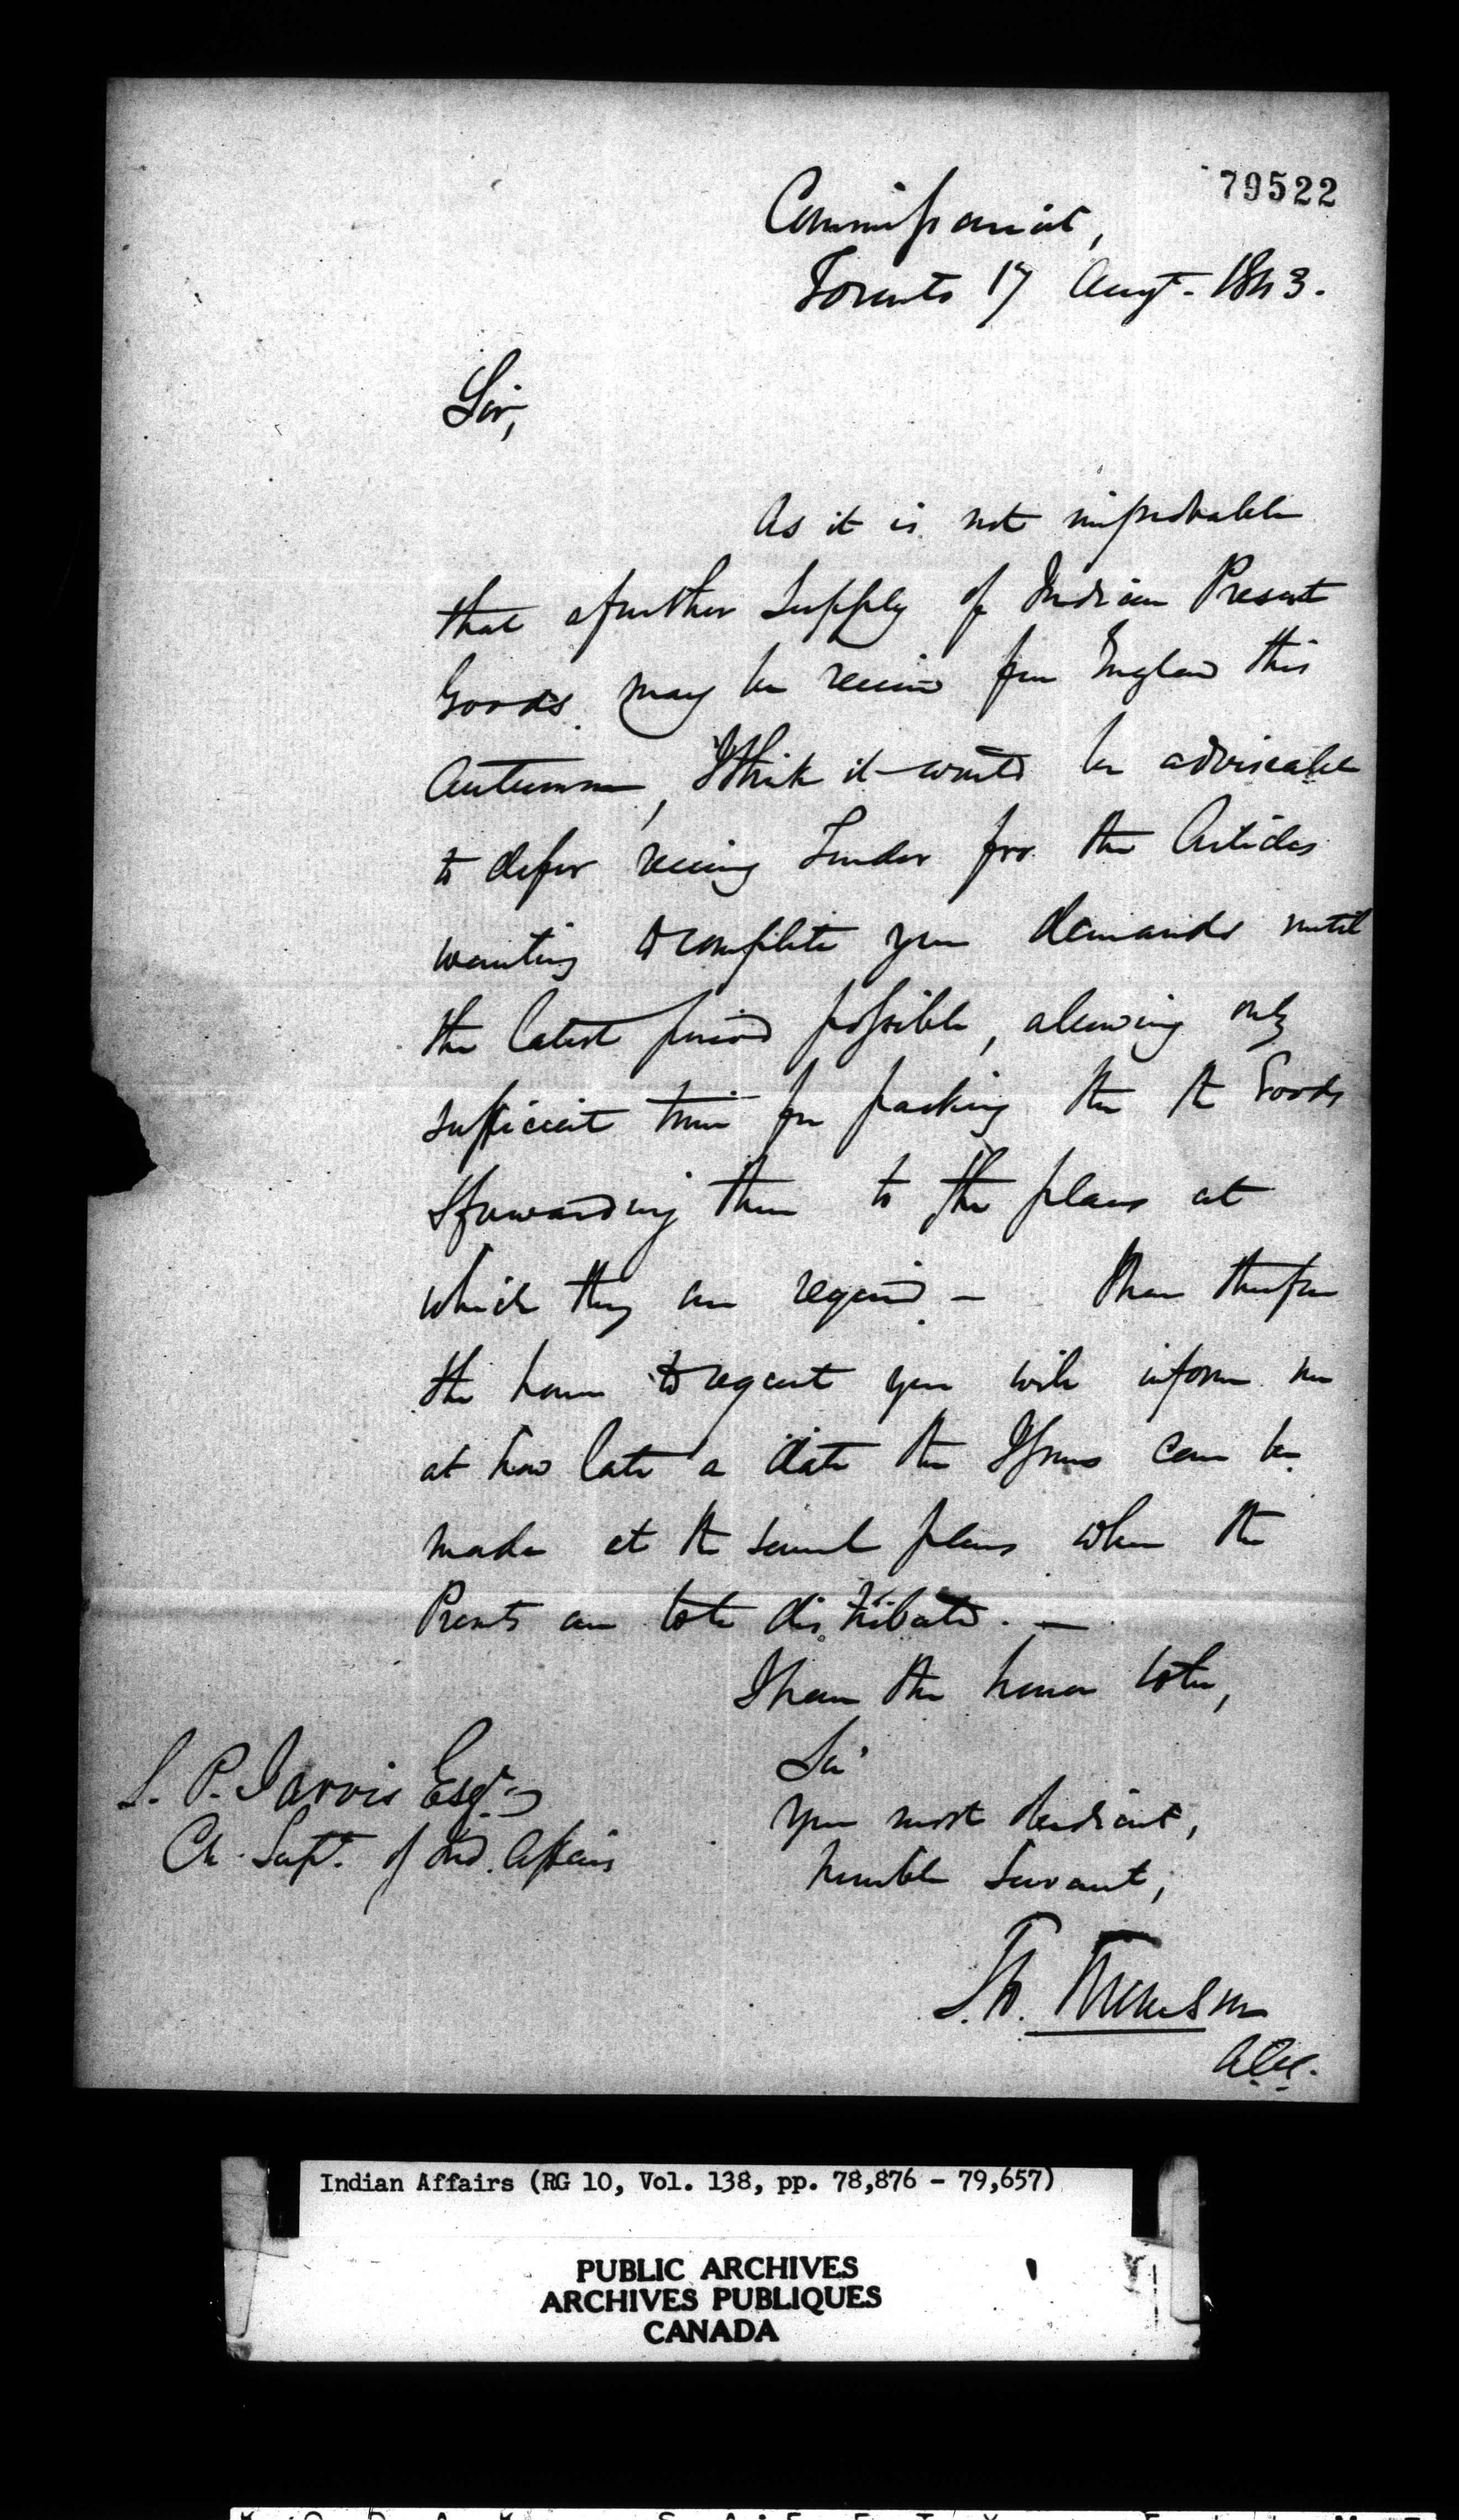 79522
Commissariat,
Toronto 17 Augt. 1843.
Sir,
As it is not improbable
that a further Supply of Indian Present
Goods may be received from England this
Autumn, I think it would be adviseable
to defer receiving Tenders for the Articles
wanting to complete your demands until
the latest period possible, allowing only
sufficient time for packing the the Goods
& forwarding them to the places at
which they are required — I have therefore
the honor to request you will inform me
at how late a date the Issues can be
made at the several places where the
Presents are to be distributed. —
I have the honor to be,
Sir
Your most obedient,
humble Servant,
S. P. Jarvis Esqr.
Ch. Supt. of Ind. Affairs
A.C.G.
Indian Affairs (RG 10, Vol. 138, pp. 78,876 - 79,657)
PUBLIC ARCHIVES
ARCHIVES PUBLIQUES
CANADA